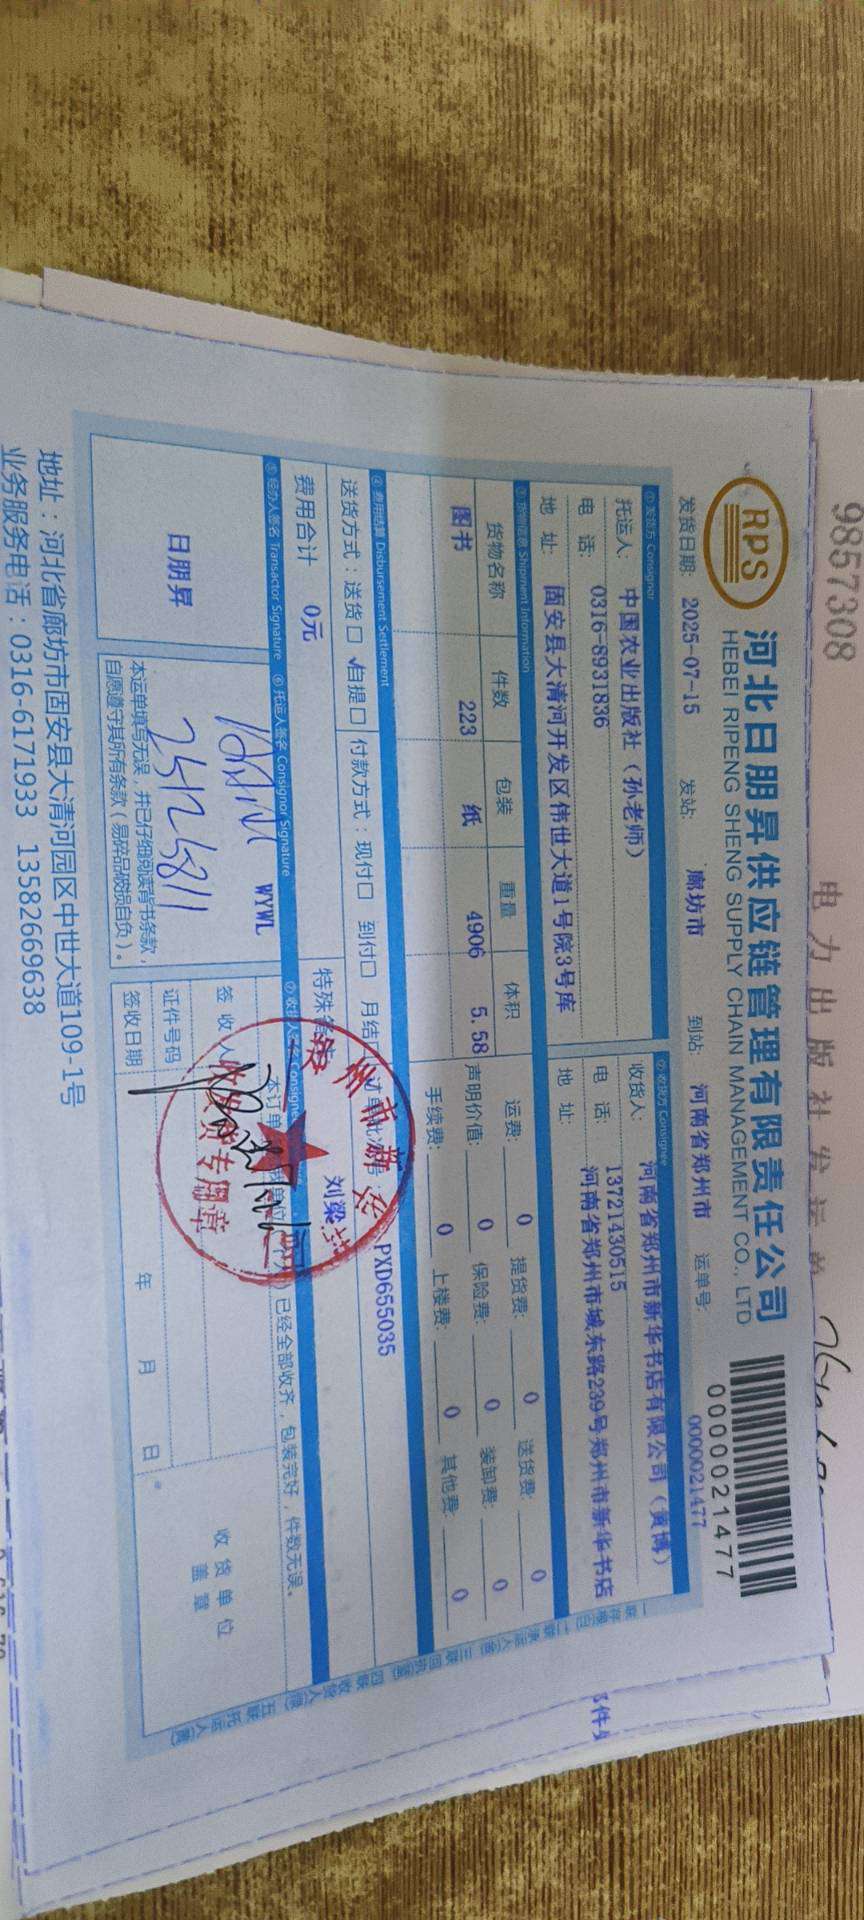 9857308
电力出版社发运单
RPS
河北日朋昇供应链管理有限责任公司
HEBEI RIPENG SHENG SUPPLY CHAIN MANAGEMENT CO., LTD
0000021477
发货日期: 2025-07-15 发站: 廊坊市 到站: 河南省郑州市 运单号: 0000021477
①发货方 Consignor
托运人: 中国农业出版社（孙老师）
电 话: 0316-8931836
地 址: 固安县大清河开发区伟世大道1号院3号库
②收货方 Consignee
收货人: 河南省郑州市新华书店有限公司（黄博）
电 话: 13721430515
地 址: 河南省郑州市城东路239号郑州市新华书店
③货物信息 Shipment Information
货物名称 件数 包装 重量 体积
图书 223 纸 4906 5.58
运费: 0 提货费: 0 送货费: 0
声明价值: 0 保险费: 0 装卸费: 0
手续费: 0 上楼费: 0 其他费: 0
④费用结算 Disbursement Settlement
送货方式：送货□ √自提□ 付款方式：现付□ 到付□ 月结□
PXD655035
费用合计 0元
特殊
刘梁
⑤经办人签名 Transactor Signature
日朋昇
⑥托运人签名 Consignor Signature
WYWL
本运单填写无误，并已仔细阅读背书条款，
自愿遵守其所有条款（易碎品破损自负）。
⑦收货人签名 Consignee
已经全部收齐，包装完好，件数无误。
签 收 人
证件号码
签收日期 年 月 日
收货单位
盖章
州市新
收货专用章
一联存根(白) 二联承运人(金) 三联回执(蓝) 四联收货人(绿) 五联托运人(黄)
地址：河北省廊坊市固安县大清河园区中世大道109-1号
业务服务电话：0316-6171933 13582669638